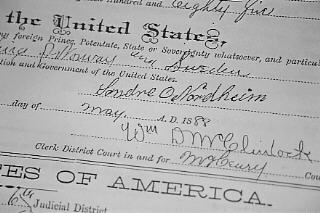 hundred and eighty five
the United States,
foreign Prince, Potentate, State or Sovereignty whatsoever, and particul
Norway Sweden
tion and Government of the United States.
Sondre O Nordheim
day of May A. D. 188
Wm D McClintock
Clerk District Court in and for McHenry Cou
ES OF AMERICA.
6th Judicial District